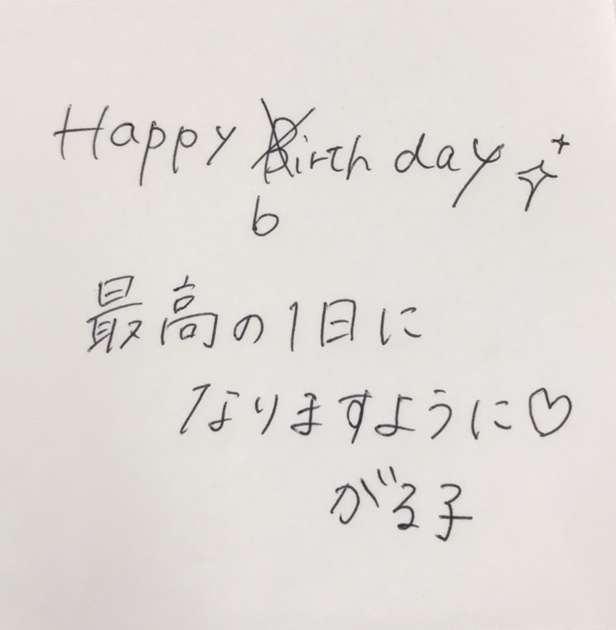 Happy birth day
最高の1日に
なりますように♡
がる子